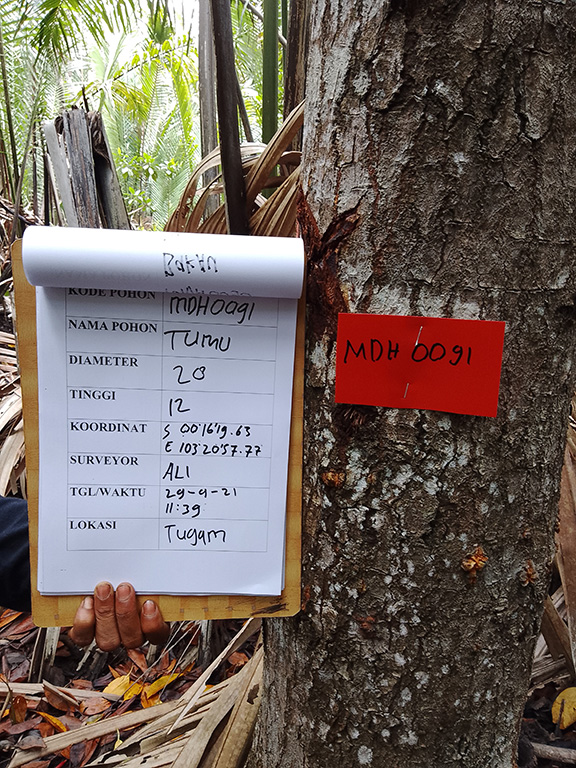 KODE POHON MDH0091
NAMA POHON TUMU
DIAMETER 28
TINGGI 12
KOORDINAT S 00°16'19.63
E 103°20'57.77
SURVEYOR ALI
TGL/WAKTU 29-9-21
11:39
LOKASI Tugam
MDH 0091